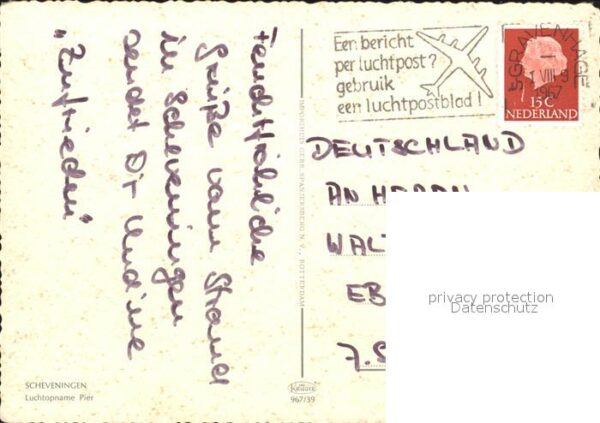 Feuchtfröhliche
Grüße vom Strand
in Scheveningen
sendet Dir Undine
"Zufrieden"
SCHEVENINGEN
Luchtopname Pier
IMPORCHUS GEBR. SPANJERSBERG N.V., ROTTERDAM
967/39
Een bericht
per luchtpost?
gebruik
een luchtpostblad!
'S GRAVENHAGE
1967
15C
NEDERLAND
DEUTSCHLAND
AN HERRN
WAL
EB
7.S
privacy protection
Datenschutz